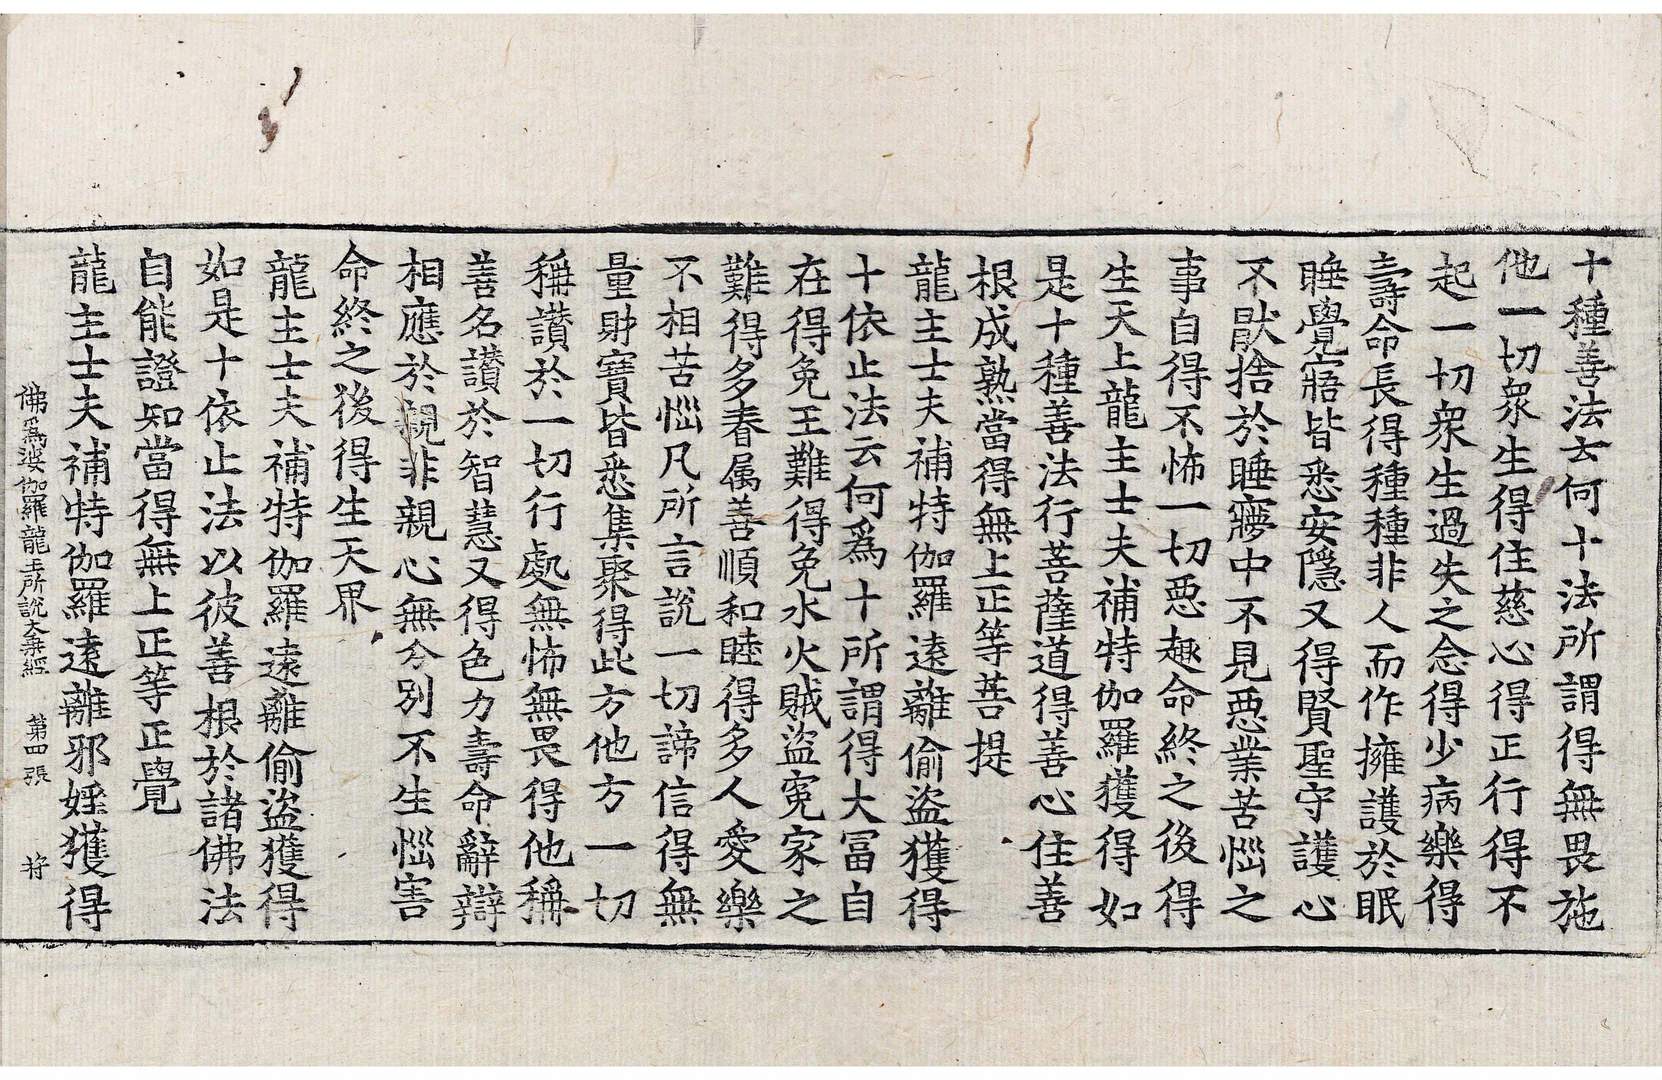 十種善法云何十法所謂得無畏施
他一切衆生得住慈心得正行得不
起一切衆生過失之念得少病樂得
壽命長得種種非人而作擁護於眠
睡覺寤皆悉安隱又得賢聖守護心
不猒捨於睡㝱中不見惡業苦惱之
事自得不怖一切惡趣命終之後得
生天上龍主士夫補特伽羅獲得如
是十種善法行菩薩道得善心住善
根成熟當得無上正等菩提
龍主士夫補特伽羅遠離偷盜獲得
十依止法云何爲十所謂得大冨自
在得免王難得免水火賊盜冤家之
難得多眷属善順和睦得多人愛樂
不相苦惱凡所言說一切諦信得無
量財寶皆悉集聚得此方他方一切
稱讃於一切行處無怖無畏得他稱
善名讃於智慧又得色力壽命辭辯
相應於親非親心無分別不生惱害
命終之後得生天界
龍主士夫補特伽羅遠離偷盜獲得
如是十依止法以彼善根於諸佛法
自能證知當得無上正等正覺
龍主士夫補特伽羅遠離邪婬獲得
佛爲娑伽羅龍王所說大乘經 第四張 将